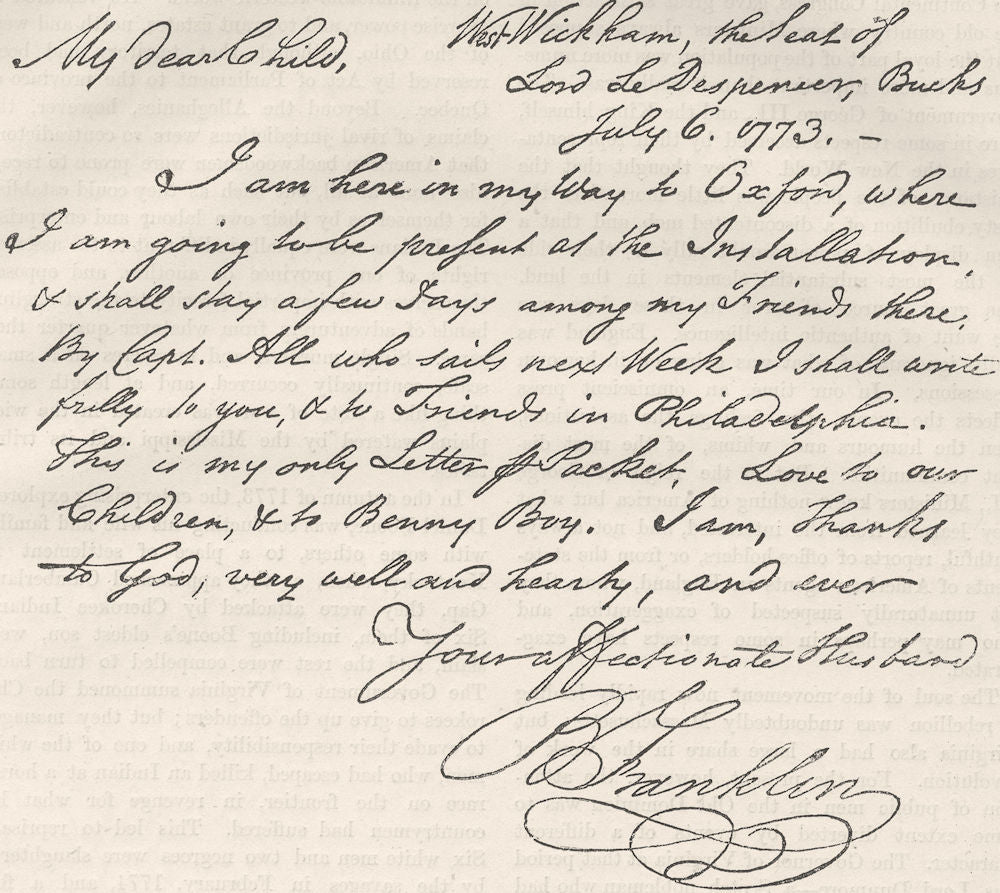 West Wickham, the Seat of
My dear Child,
Lord Le Despencer, Bucks
July 6. 1773. —
I am here in my Way to Oxford, where
I am going to be present at the Installation,
& shall stay a few Days among my Friends there.
By Capt. All who sails next Week I shall write
fully to you, & to Friends in Philadelphia.
This is my only Letter Packet. Love to our
Children, & to Benny Boy. I am, Thanks
to God, very well and hearty, and ever
Your affectionate Husband
B Franklin